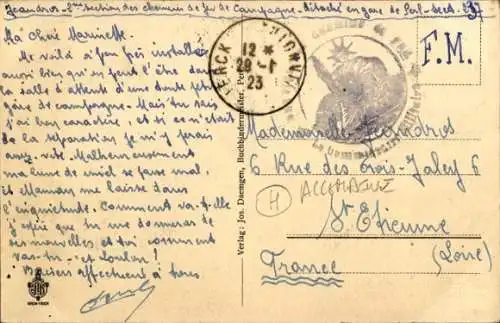 Jeandros - 2me section des chemins de fer de Campagne - détaché en gare de Perl - Sect. 237
Ma Chère Marinette
Me voilà à peu près installé
aussi bien qu'on peut l'être dans
la salle d'attente d'une toute petite
gare de campagne. Mais tu sais
j'ai bon caractère, et si ce n'était
de la séparation je m'y ferais
assez vite. Malheureusement
ma lune de miel se passe mal,
et Maman me laisse dans
l'inquiétude. Comment va-t-elle
j'espère que tu me donneras de
ses nouvelles et toi comment
vas-tu et Loulou!
Baisers affectueux à tous
SIERCK
THIONVILLE
12 *
29 - 1
23
CHEMINS DE FER
Le Commissaire Militaire
F.M.
Mademoiselle Jeandros
6 Rue des Trois-Jaley 6
H
ALLEMAGNE
St Etienne
(Loire)
France
Verlag: Jos. Daemgen, Buchbindermeister, Perl